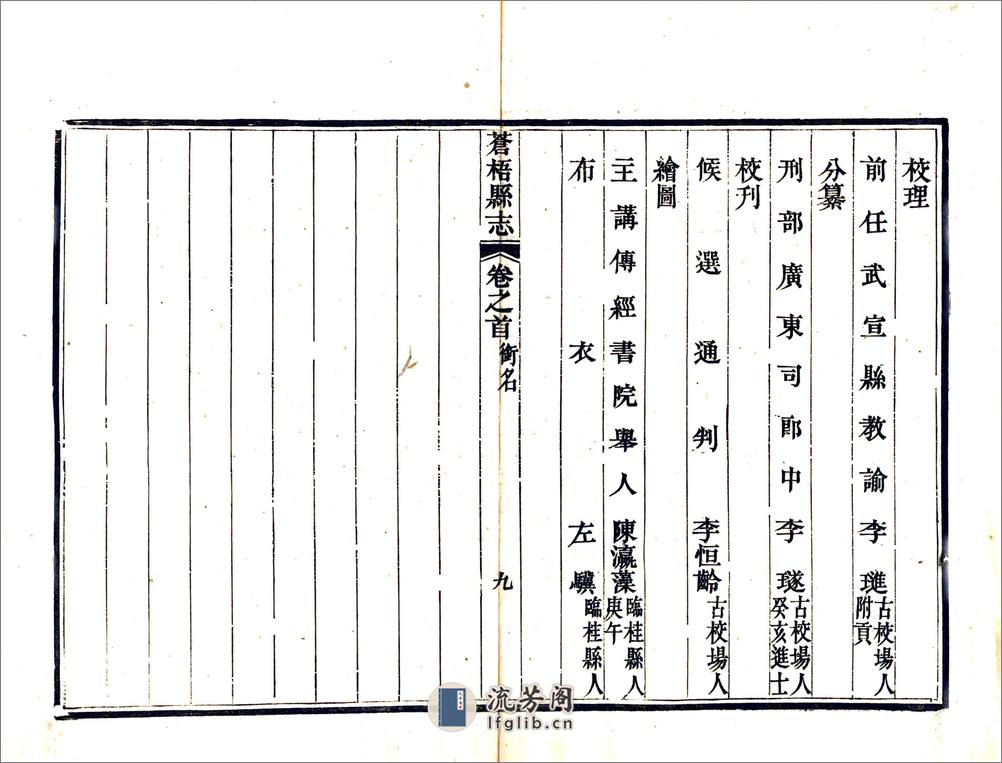 校理
前任武宣縣教諭李璡古校場人附貢
分纂
刑部廣東司郎中李璲古校場人癸亥進士
校刊
候選通判李恒齡古校場人
繪圖
主講傳經書院舉人陳瀛藻臨桂縣人庚午
布衣左驥臨桂縣人
蒼梧縣志 卷之首 銜名 九
流芳阁
lfglib.cn